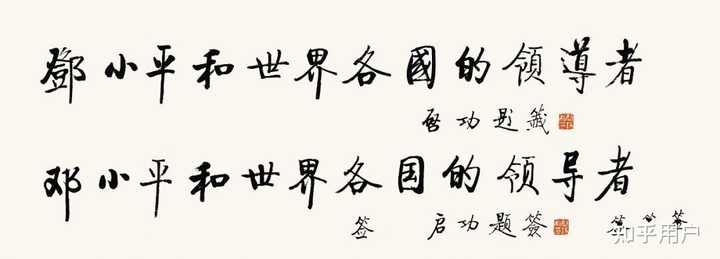 鄧小平和世界各國的領導者
啓功題籤
邓小平和世界各国的领导者
签 启功题簽 签 签 签
知乎用户